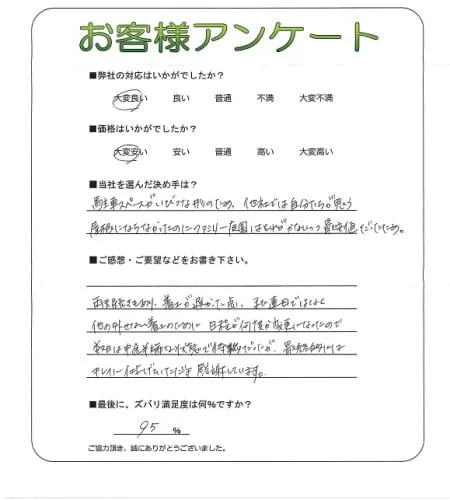 お客様アンケート
■弊社の対応はいかがでしたか?
大変良い 良い 普通 不満 大変不満
■価格はいかがでしたか?
大変安い 安い 普通 高い 大変高い
■当社を選んだ決め手は?
駐車スペースがいびつな形のため、他社では自分たちが思う
屋根にならなかったのにファミリー庭園はそれがかないつつ最安値だったため。
■ご感想・ご要望などをお書き下さい。
雨続きもあり、着工が遅かった点、また連日ではなく
他の外せない着工のために日程が何度か変更になったので
です
最終的には
キレイに仕上げていただき感謝しています。
■最後に、ズバリ満足度は何%ですか?
95 %
ご協力頂き、誠にありがとうございました。